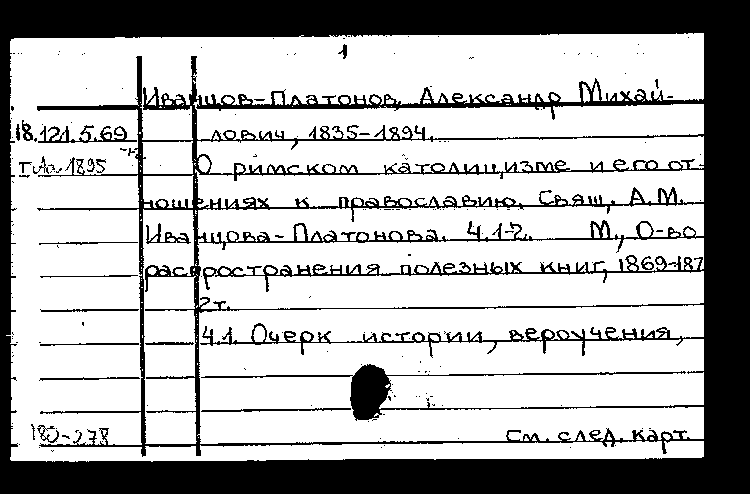 1
Иванцов-Платонов, Александр Михай-
18.121.5.69 лович, 1835-1894.
О римском католицизме и его от-
ношениях к православию. Свящ. А.М.
Иванцова-Платонова. Ч.1-2. М., О-во
распространения полезных книг, 1869-187
2т.
Ч.1. Очерк истории, вероучения,
180-278
См. след. карт.